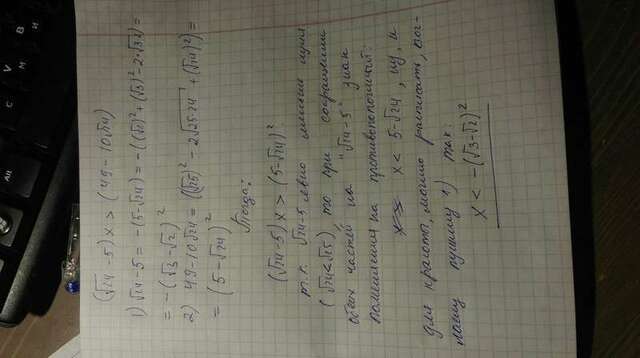 (√24 - 5) x > (49 - 10√24)
1) √24 - 5 = -(5 - √24) = -((√2)² + (√3)² - 2·√3·2) =
= -(√3 - √2)²
2) 49 - 10√24 = ((√25)² - 2√25·24 + (√24)²) =
= (5 - √24)²
Тогда:
(√24 - 5) x > (5 - √24)²
т.к. √24 - 5 явно меньше нуля
(√24 < √25) то при сокращении
обеих частей на "√24 - 5" знак
поменяется на противоположный:
x < 5 - √24, ну, и
для красоты, можно расписать, пог-
лому пункту 1) так:
x < -(√3 - √2)²